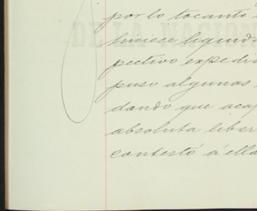 por lo tocante
hiciese
pectivo expedi
puso algunas
dando que aca
absoluta liber
contestó á ella